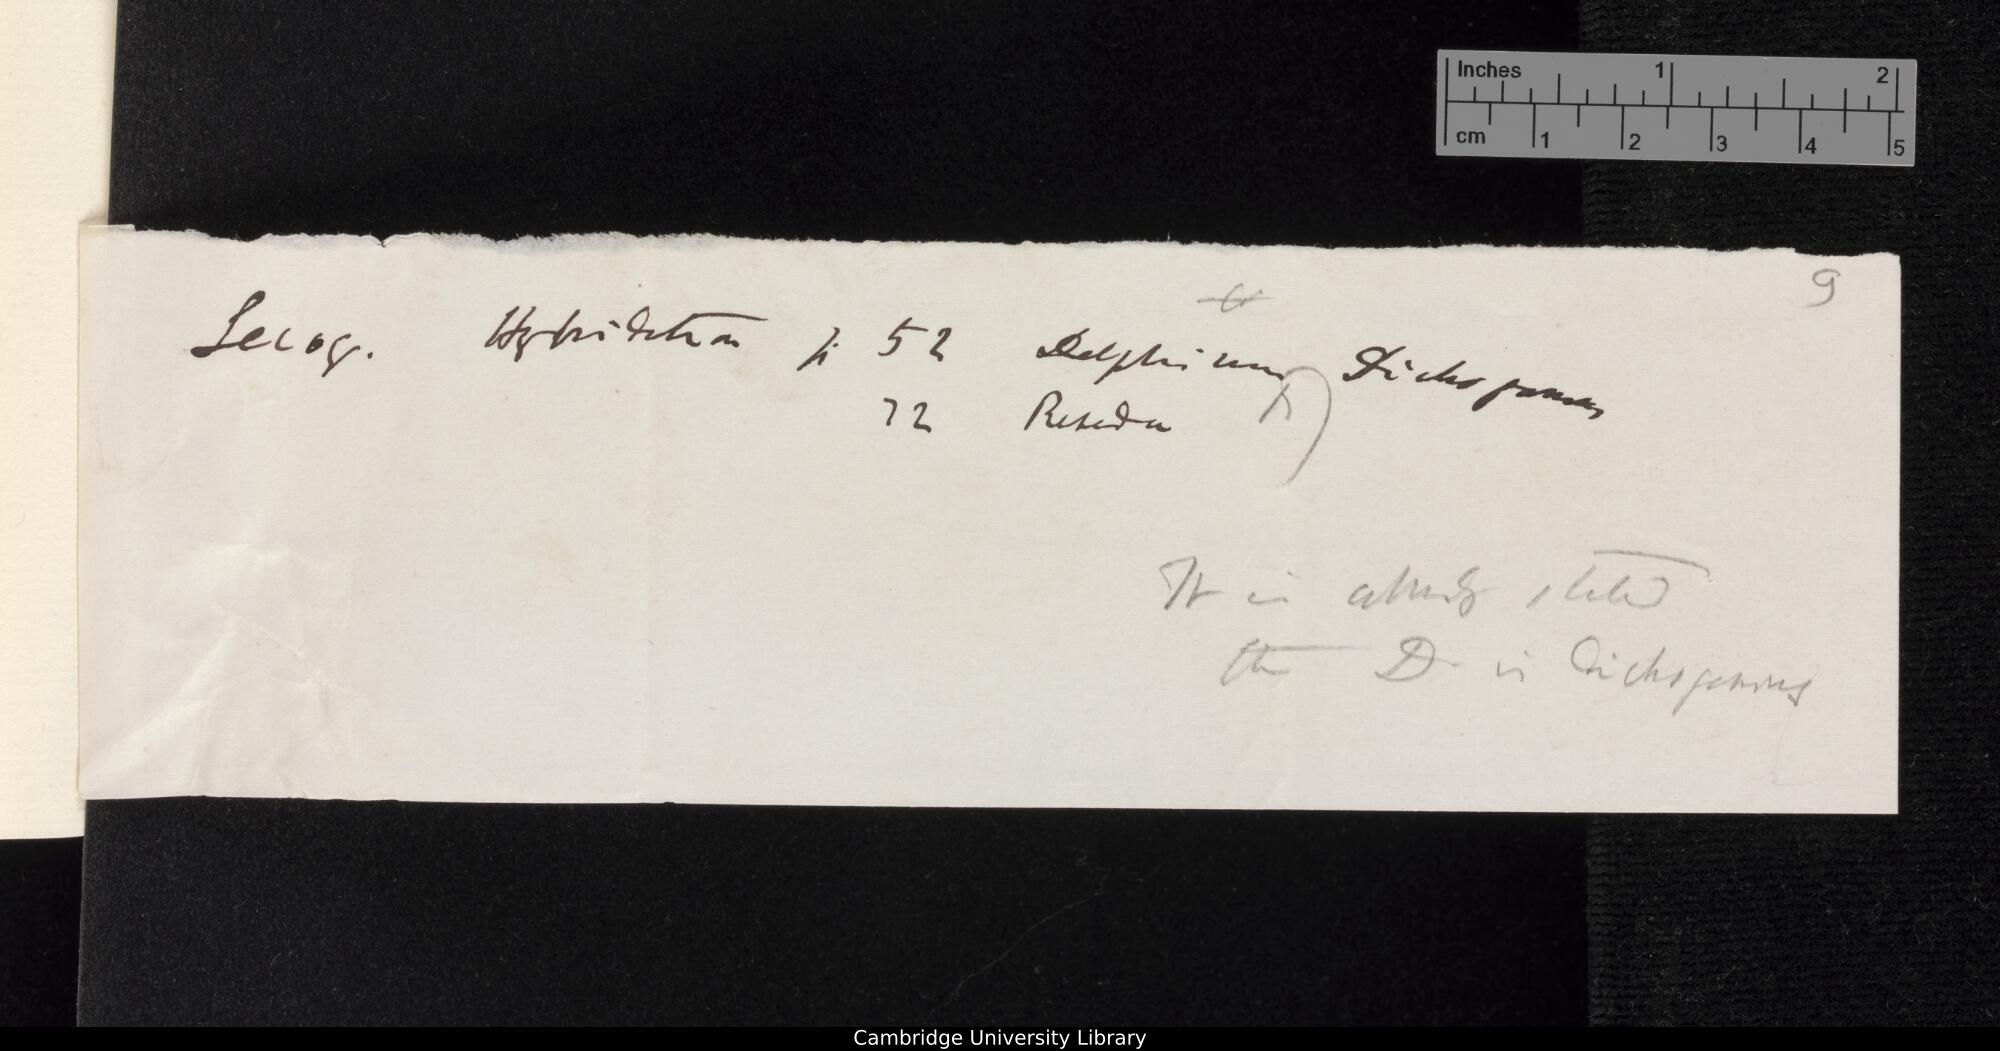 Inches 1 2
cm 1 2 3 4 5
9
Lecoq. Hybridation p 52 Delphinium Dichogamous
72 Reseda
It is already stated
the D. is dichogamous
Cambridge University Library